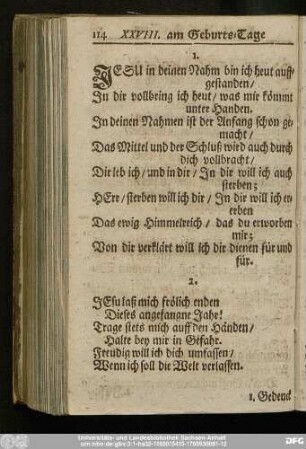 114 XXVIII. am Geburts-Tage
1.
JESU in deinen Nahm bin ich heut auff-
gestanden/
In dir vollbring ich heut/ was mir kömmt
unter Handen.
In deinen Nahmen ist der Anfang schon ge-
macht/
Das Mittel und der Schluß wird auch durch
dich vollbracht/
Dir leb ich/ und in dir/ In dir will ich auch
sterben;
HErr/ sterben will ich dir/ In dir will ich er-
erben
Das ewig Himmelreich/ das du erworben
mir;
Von dir verklärt will ich dir dienen für und
für.
2.
JEsu laß mich frölich enden
Dieses angefangne Jahr!
Trage stets mich auff den Händen/
Halte bey mir in Gefahr.
Freudig will ich dich umfassen/
Wenn ich soll die Welt verlassen.
1. Gedenck
Universitäts- und Landesbibliothek Sachsen-Anhalt
DFG